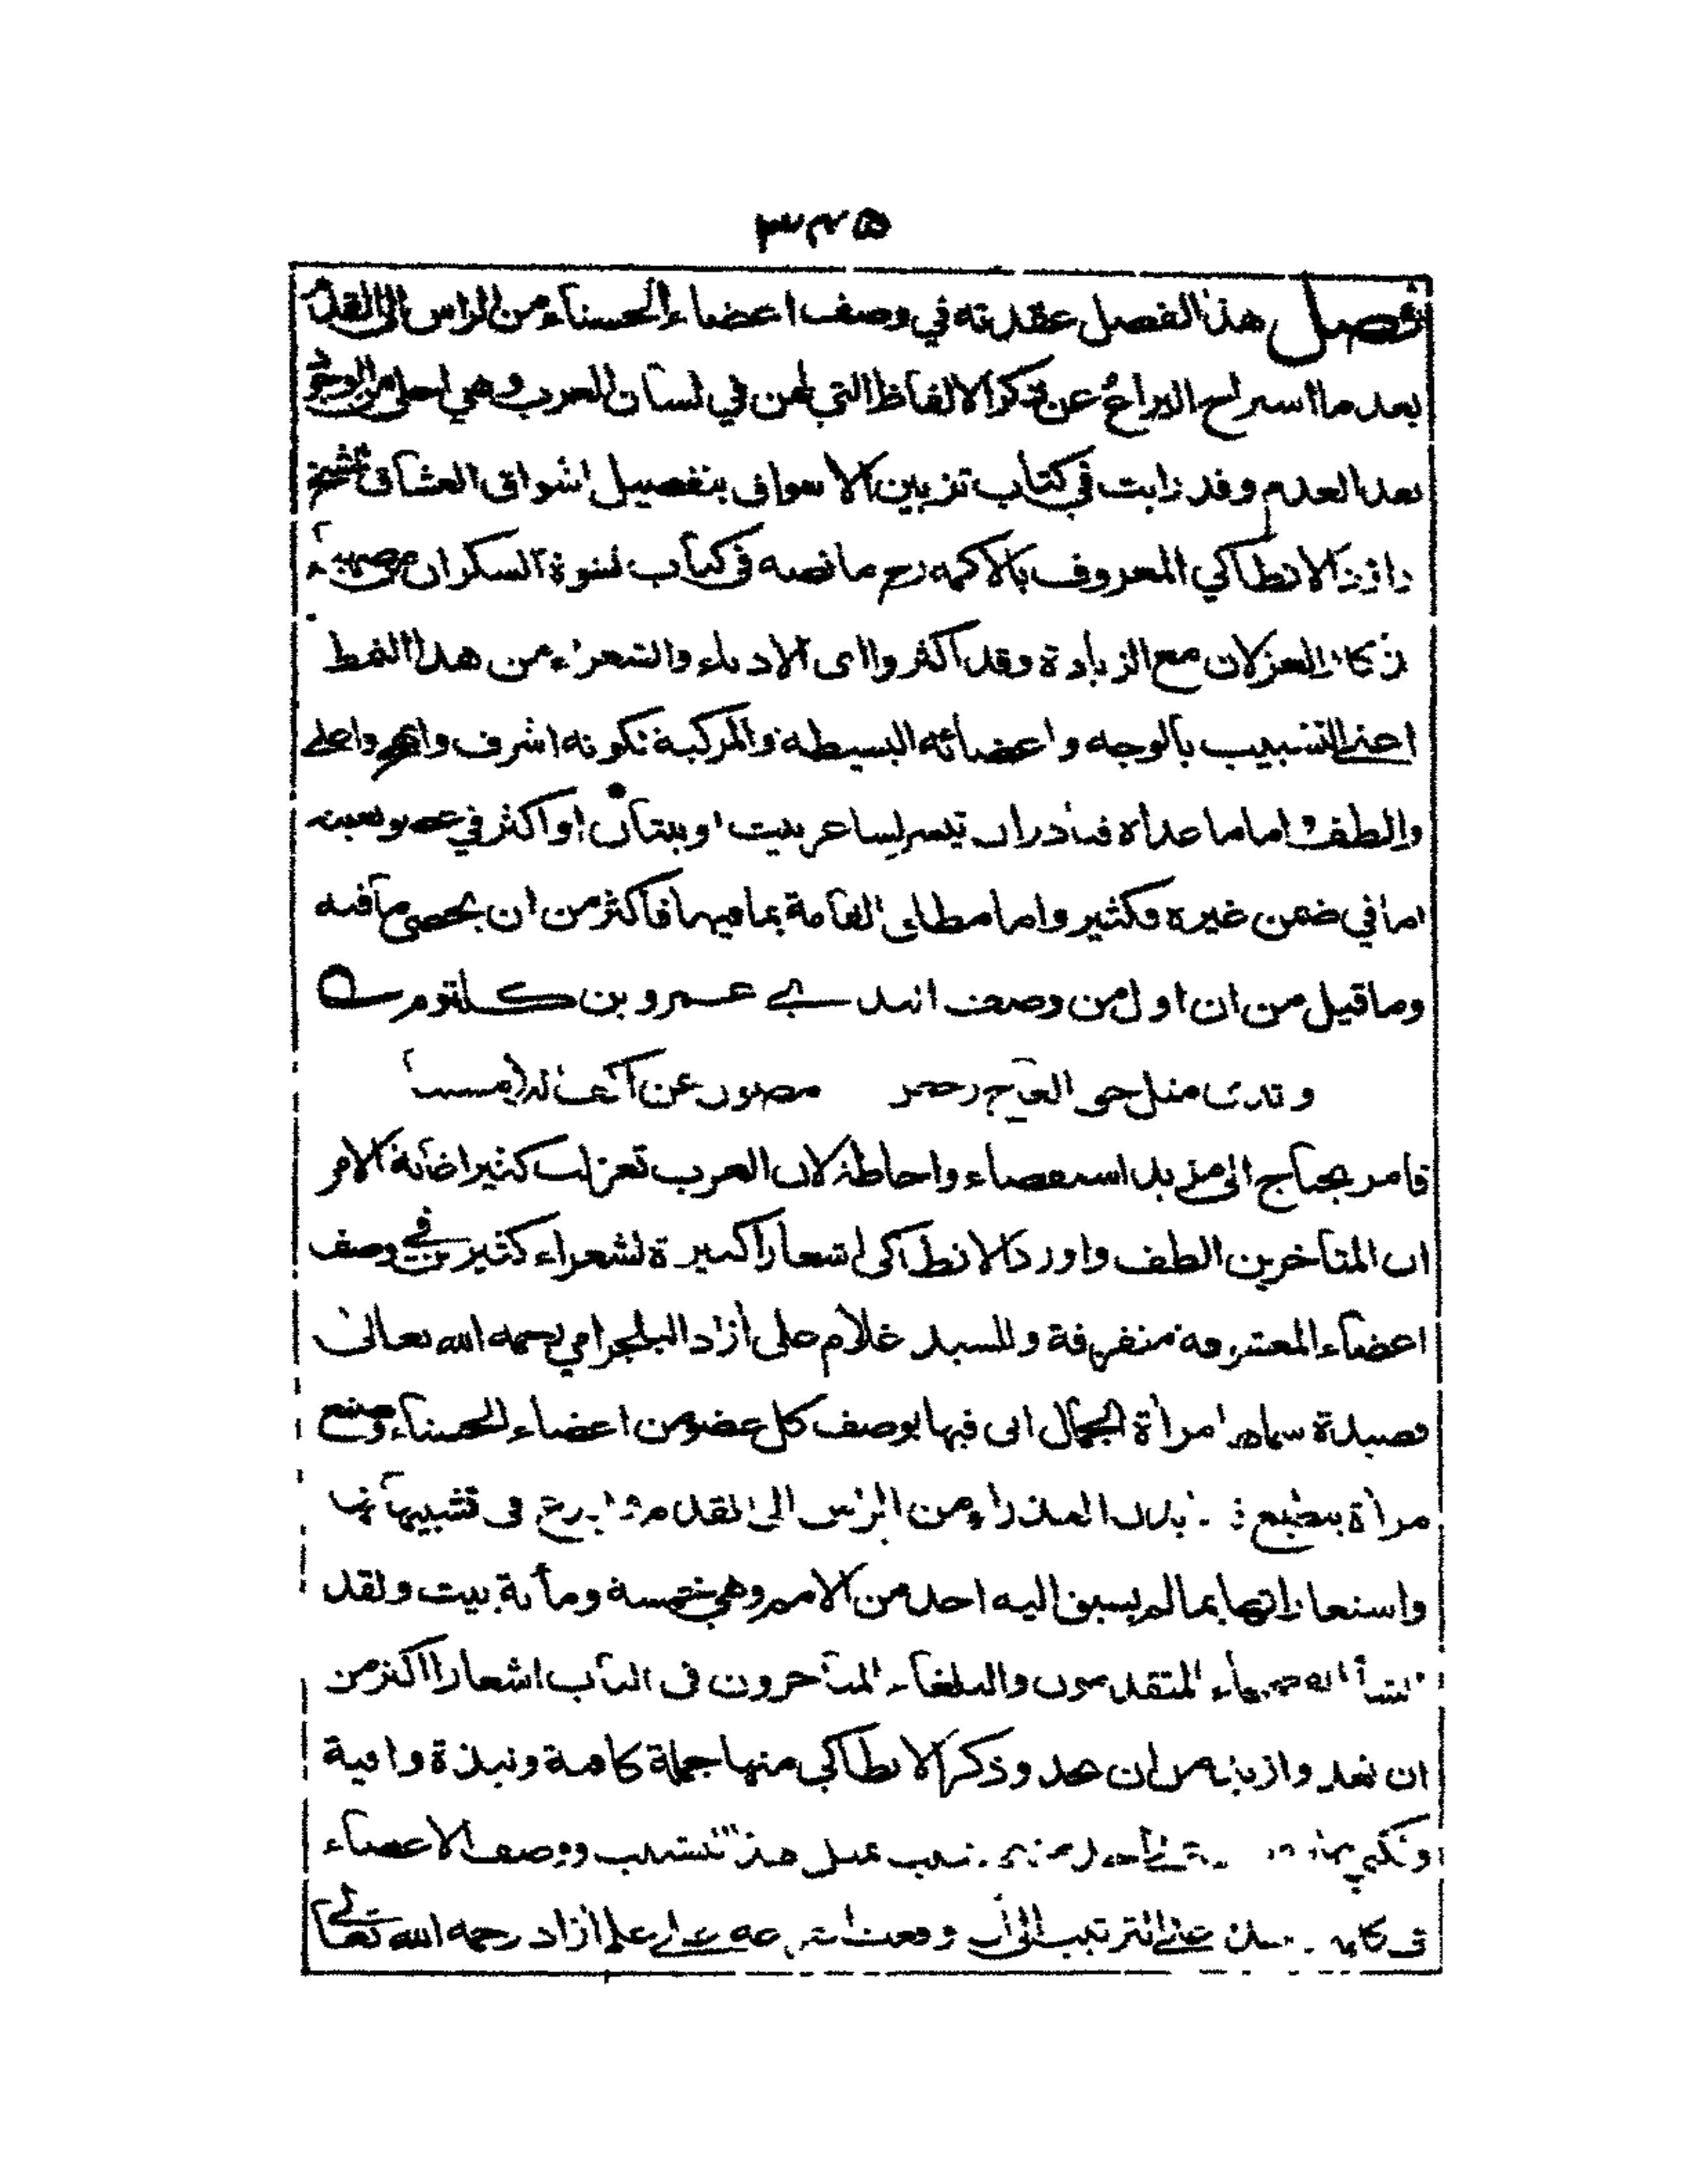 ٣٤٥
فصل هذا الفصل عقدته في وصف اعضاء الحسناء من الراس الى القدم
بعد ما استراح اليراع عن ذكر الالفاظ التي لهن في لسان العرب وهي احلى من الوجود
بعد العدم وقد رايت في كتاب تزيين الاسواق بتفصيل اشواق العشاق للشيخ
داؤد الانطاكي المعروف بالاكمه رح ما نصه في كتاب نشوة السكران من صهباء
تذكار الغزلان مع الزيادة وقد اكثروا اى الادباء والشعراء من هذا النمط
اعنى التشبيب بالوجه واعضائه البسيطة والمركبة لكونه اشرف وابهج واعلى
والطف واما ما عداه فنادران تيسر لشاعر بيت او بيتان او اكثر في عضو بعينه
اما في ضمن غيره فكثير واما مطلق القامة بما فيها فاكثر من ان يحصى ما فيه
وما قيل من ان اول من وصف الثدى عمرو بن كلثوم
وثديا مثل حق العاج رخصا مصون عن اكف اللامسينا
فامر يحتاج الى مزيد استقصاء واحاطة لان العرب تغزلت كثيرا غاية الامر
ان المتاخرين الطف واورد الانطاكي اشعارا كثيرة لشعراء كثيرين في وصف
اعضاء المعشوقة متفرقة وللسيد غلام على ازاد البلجرامي رحمه الله تعالى
قصيدة سماها مرأة الجمال اتى فيها بوصف كل عضو من اعضاء الحسناء وصنع
مرأة ينطبع فيها بدن العذراء من الراس الى القدم رح في تشبيهاتها
واستعاراتها بما لم يسبق اليه احد من الامم وهي خمسة ومأية بيت ولقد
المتقدمون والبلغاء المتأخرون في الباب اشعارا اكثر من
ان تعد وازيد من ان تحد وذكر الانطاكي منها جملة كافية ونبذة وافية
ولكن مثل هذا التشبيب ووصف الاعضاء
في على الترتيب الى ان وقعت على ازاد رحمه الله تعالى